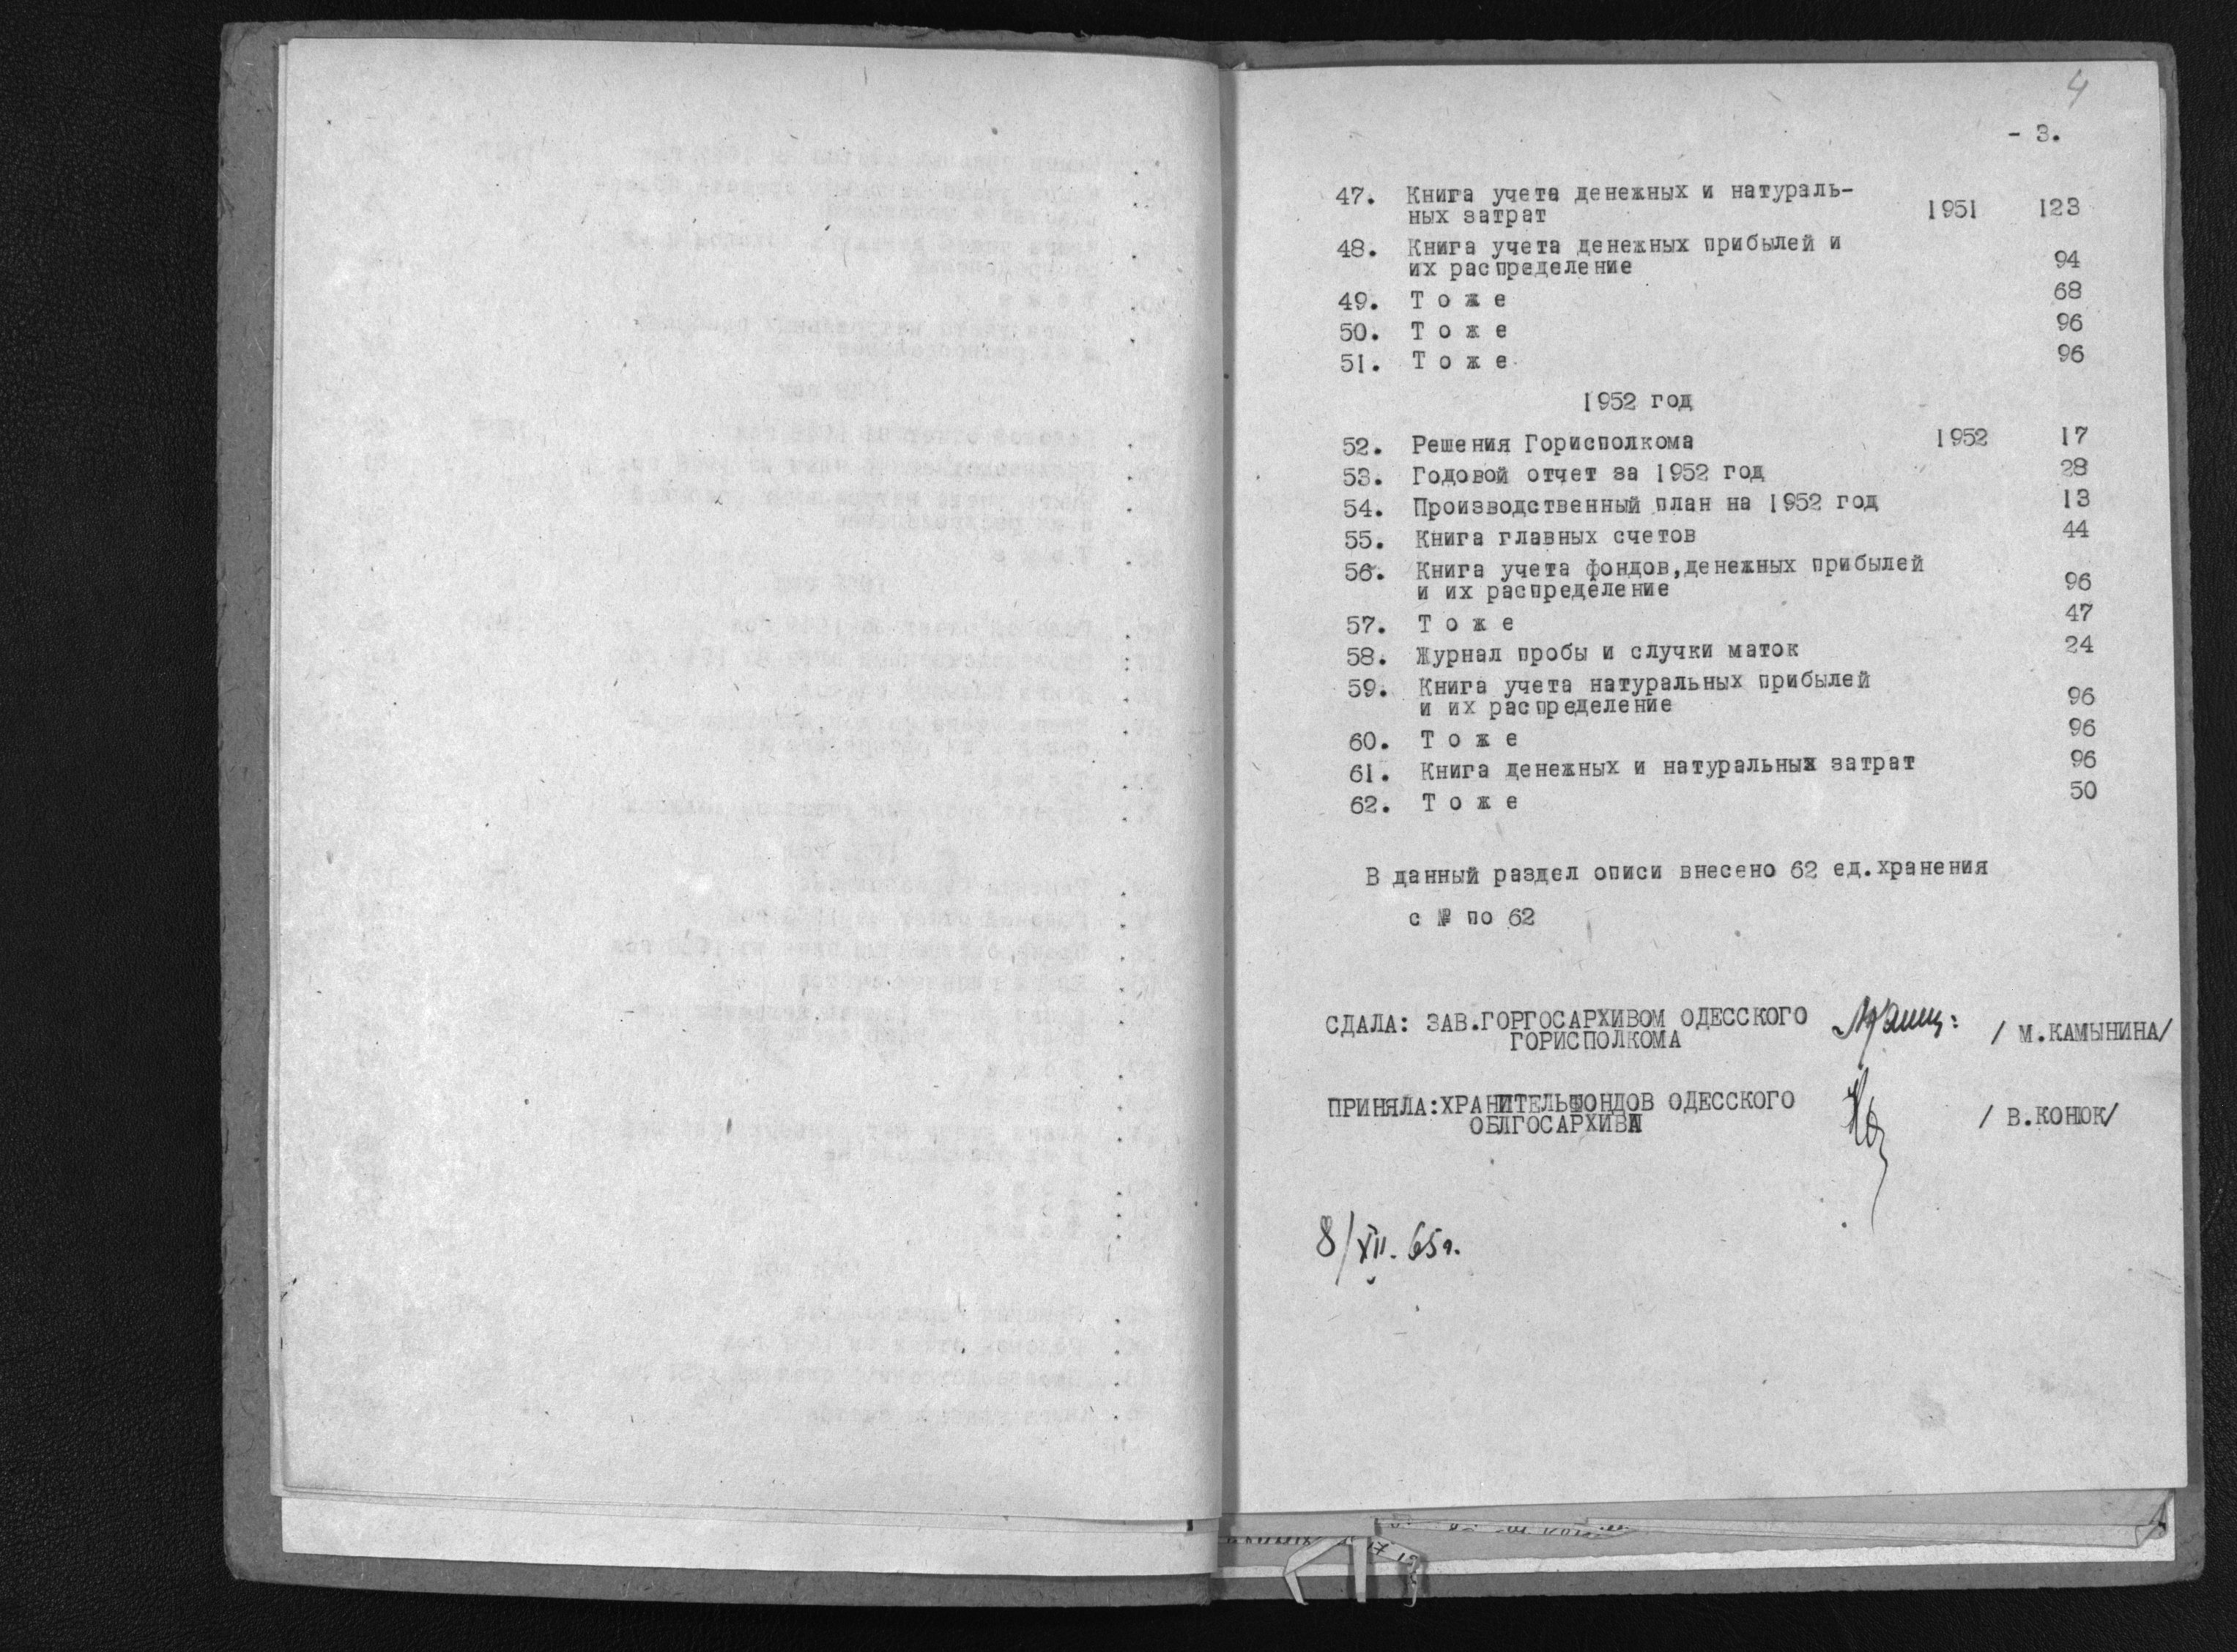 4
- 3.
47. Книга учета денежных и натураль-
ных затрат 1951 123
48. Книга учета денежных прибылей и
их распределение 94
49. Т о ж е 68
50. Т о ж е 96
51. Т о ж е 96
1952 год
52. Решения Горисполкома 1952 17
53. Годовой отчет за 1952 год 28
54. Производственный план на 1952 год 13
55. Книга главных счетов 44
56. Книга учета фондов,денежных прибылей
и их распределение 96
57. Т о ж е 47
58. Журнал пробы и случки маток 24
59. Книга учета натуральных прибылей
и их распределение 96
60. Т о ж е 96
61. Книга денежных и натуральных затрат 96
62. Т о ж е 50
В данный раздел описи внесено 62 ед.хранения
с № по 62
СДАЛА: ЗАВ.ГОРГОСАРХИВОМ ОДЕССКОГО
ГОРИСПОЛКОМА / М.КАМЫНИНА/
ПРИНЯЛА:ХРАНИТЕЛЬФОНДОВ ОДЕССКОГО
ОБЛГОСАРХИВА / В.КОНЮК/
8/XII. 65г.